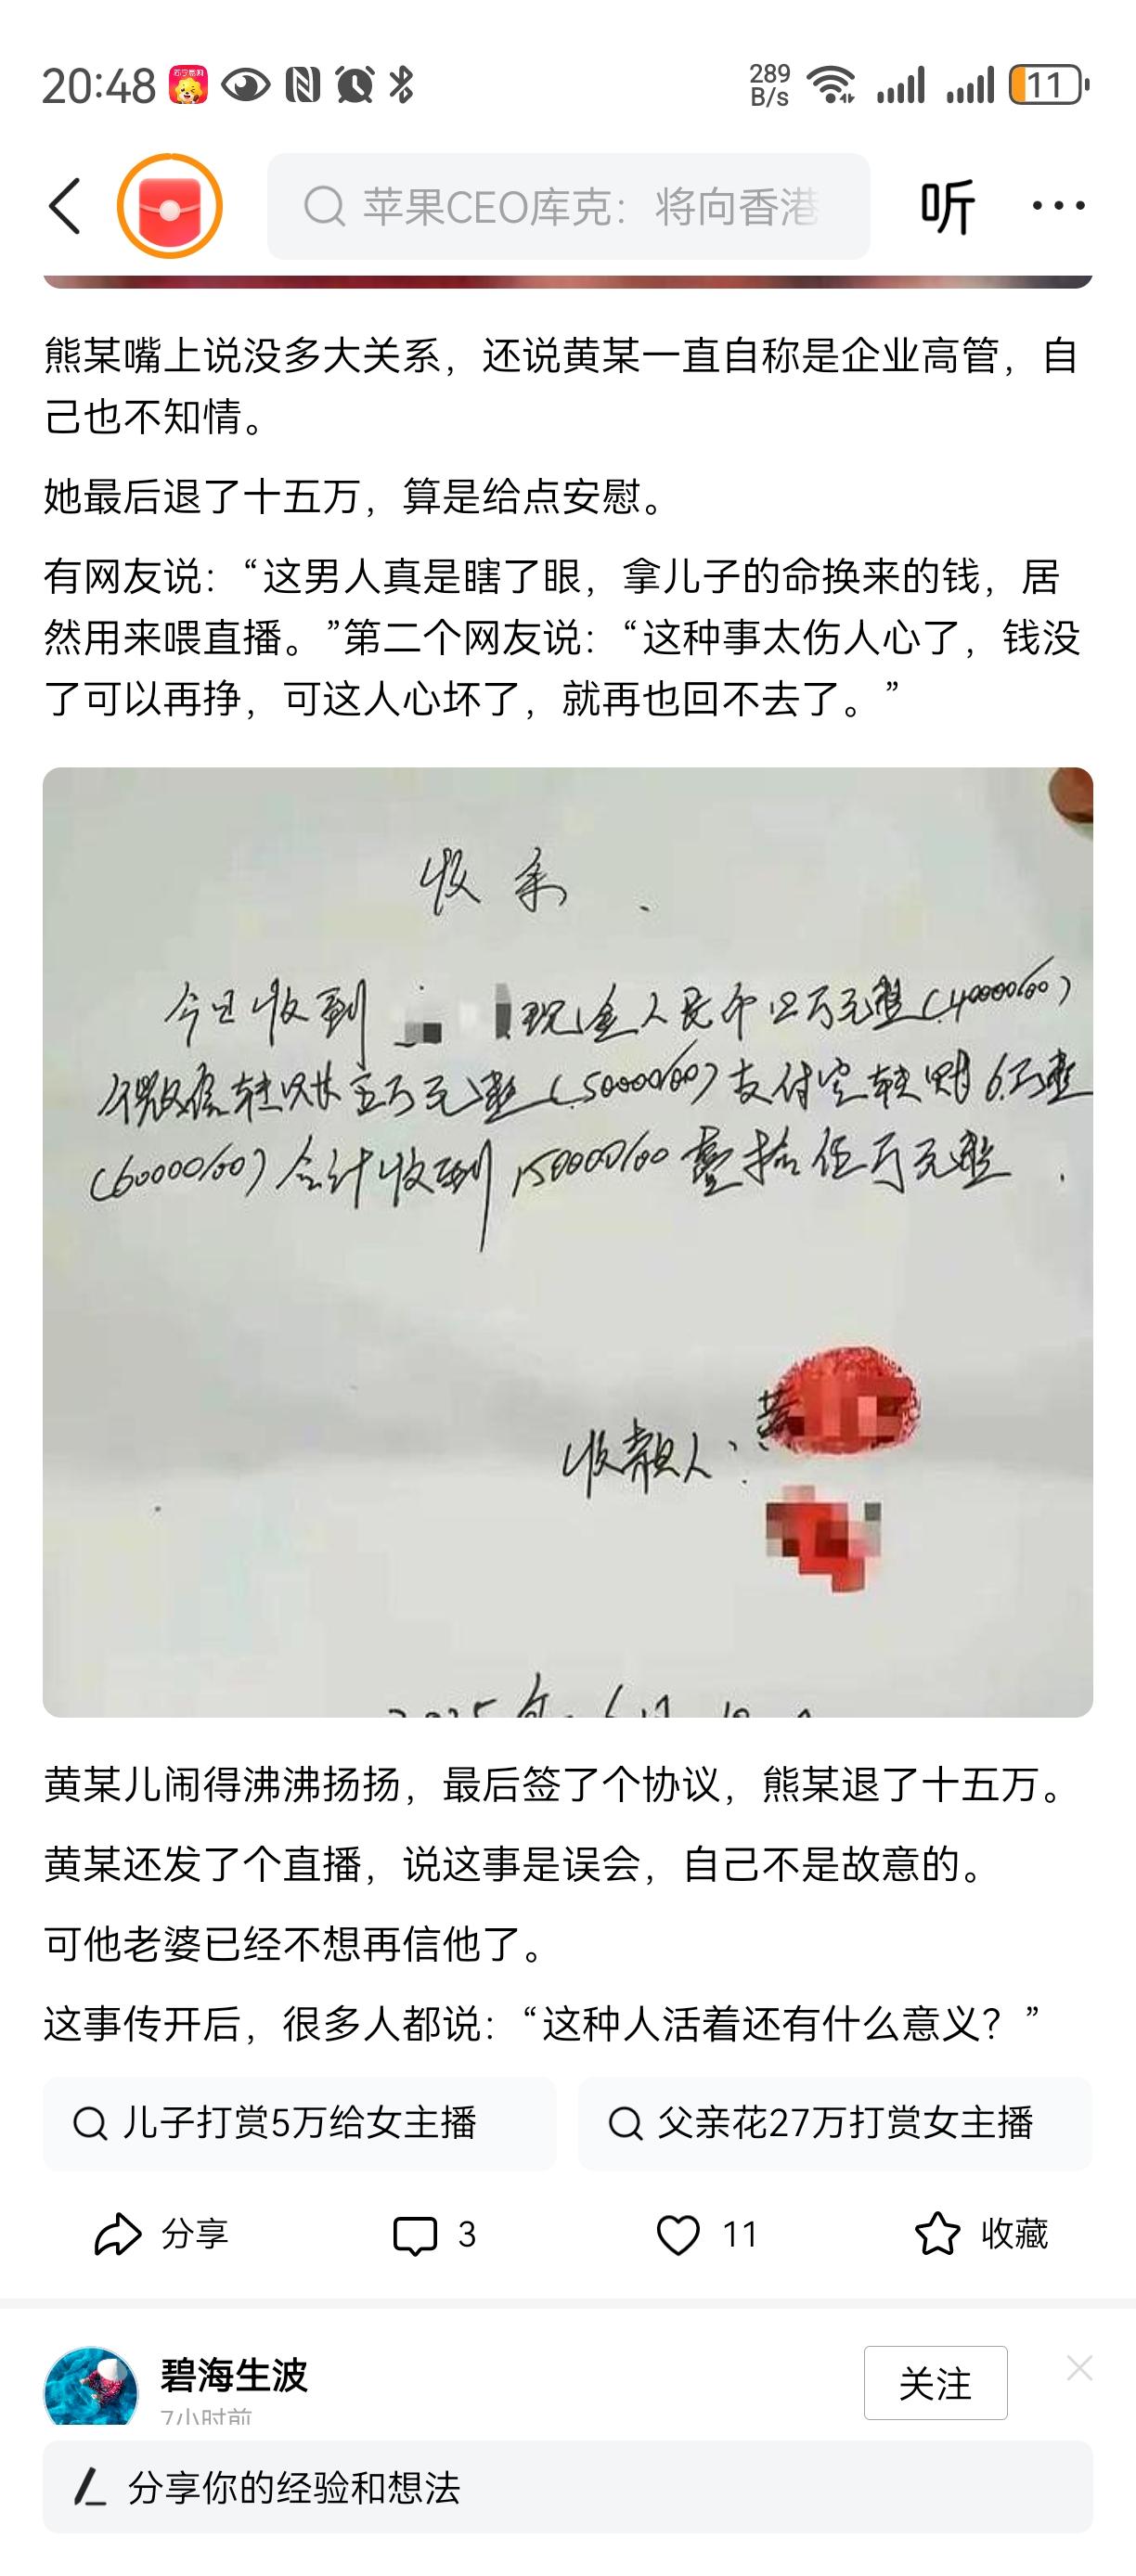 20:48
289
B/s
11
苹果CEO库克：将向香港
听
熊某嘴上说没多大关系，还说黄某一直自称是企业高管，自
己也不知情。
她最后退了十五万，算是给点安慰。
有网友说：“这男人真是瞎了眼，拿儿子的命换来的钱，居
然用来喂直播。”第二个网友说：“这种事太伤人心了，钱没
了可以再挣，可这人心坏了，就再也回不去了。”
收条
今日收到 现金人民币四万元整（40000/00）
微信转账五万元整（50000/00）支付宝转账6万整
（60000/00）合计收到150000/00壹拾伍万元整
收款人：黄
2025年6月
黄某儿闹得沸沸扬扬，最后签了个协议，熊某退了十五万。
黄某还发了个直播，说这事是误会，自己不是故意的。
可他老婆已经不想再信他了。
这事传开后，很多人都说：“这种人活着还有什么意义？”
儿子打赏5万给女主播
父亲花27万打赏女主播
分享
3
11
收藏
碧海生波
关注
7小时前
分享你的经验和想法